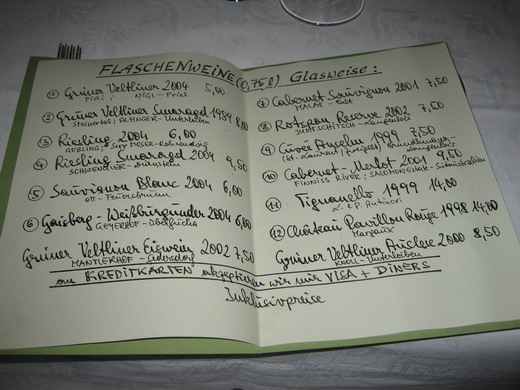 FLASCHENWEINE (0,75 l) Glasweise:
① Grüner Veltliner 2004 5,00
PIRI, NIGL - Priel
② Grüner Veltliner Smaragd 1999 8,00
Steinertal; ALZINGER - Unterloiben
③ Riesling 2004 6,00
GEBLING; Sepp MOSER - Rohrendorf
④ Riesling Smaragd 2004 9,50
SCHOENLEITEN -
⑤ Sauvignon Blanc 2004 6,00
OTT - Feuersbrunn
⑥ Gaisberg - Weißburgunder 2004 6,00
GEYERHOF - Oberfucha
Grüner Veltliner Eiswein 2002 7,50
MANTLERHOF - Gedersdorf
⑦ Cabernet-Sauvignon 2001 7,50
MALAT - Furth
⑧ Rotspon Reserve 2002 7,50
JURTSCHITSCH - Langenlois
⑨ Cuvée Anselm 1999 7,50
(St. Laurent / Zweigelt) Bründlmayer - Langenlois
⑩ Cabernet - Merlot 2001 9,50
FINNISS RIVER; SALOMON ESTATE - Südaustralien
⑪ Tignanello 1999 14,00
L. & P. Antinori
⑫ Château Pavillon Rouge 1998 14,00
Margaux
Grüner Veltliner Auslese 2000 8,50
KNOLL - Unterloiben
an KREDITKARTEN akzeptieren wir nur VISA + DINERS
Inklusivpreise